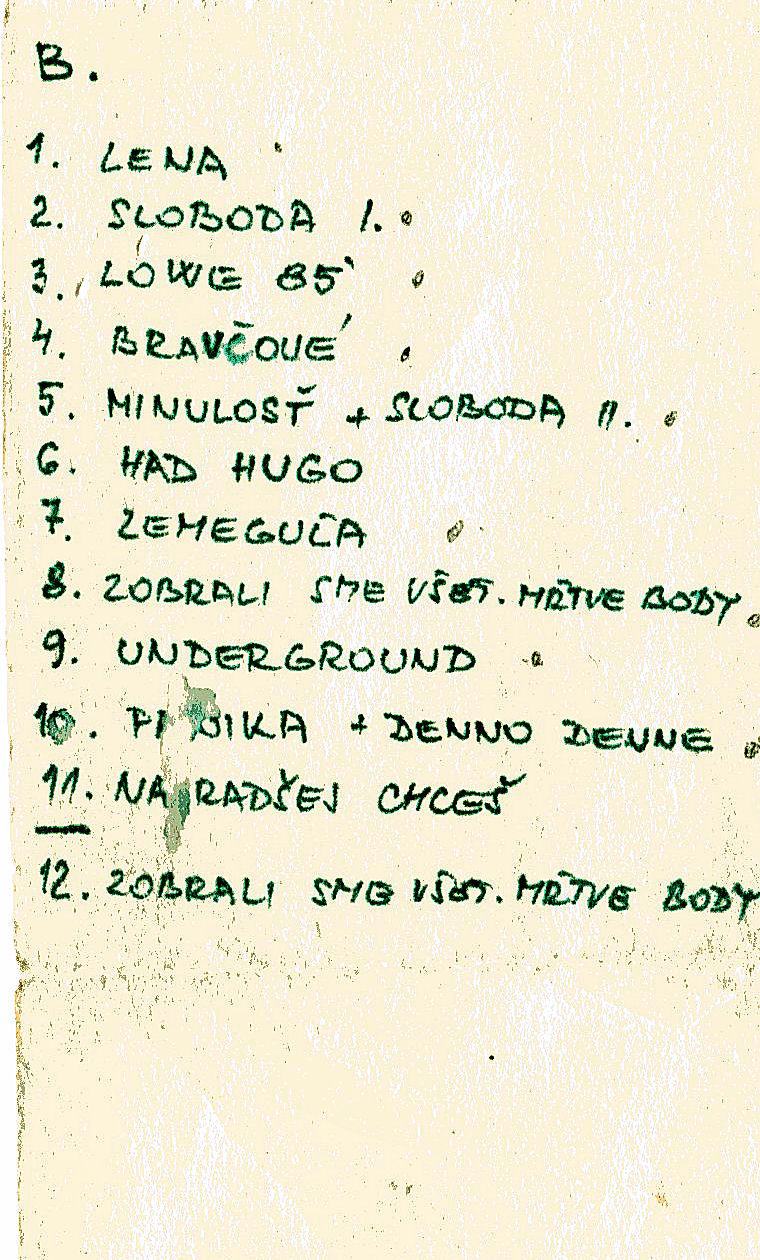 B.
1. LENA
2. SLOBODA I.
3. LOWE 85'
4. BRAVČOVÉ
5. MINULOSŤ + SLOBODA II.
6. HAD HUGO
7. ZEMEGUĽA
8. ZOBRALI SME VŠET. MŔTVE BODY
9. UNDERGROUND
10. + DENNO DENNE
11. NA RADŠEJ CHCEŠ
12. ZOBRALI SME VŠET. MŔTVE BODY